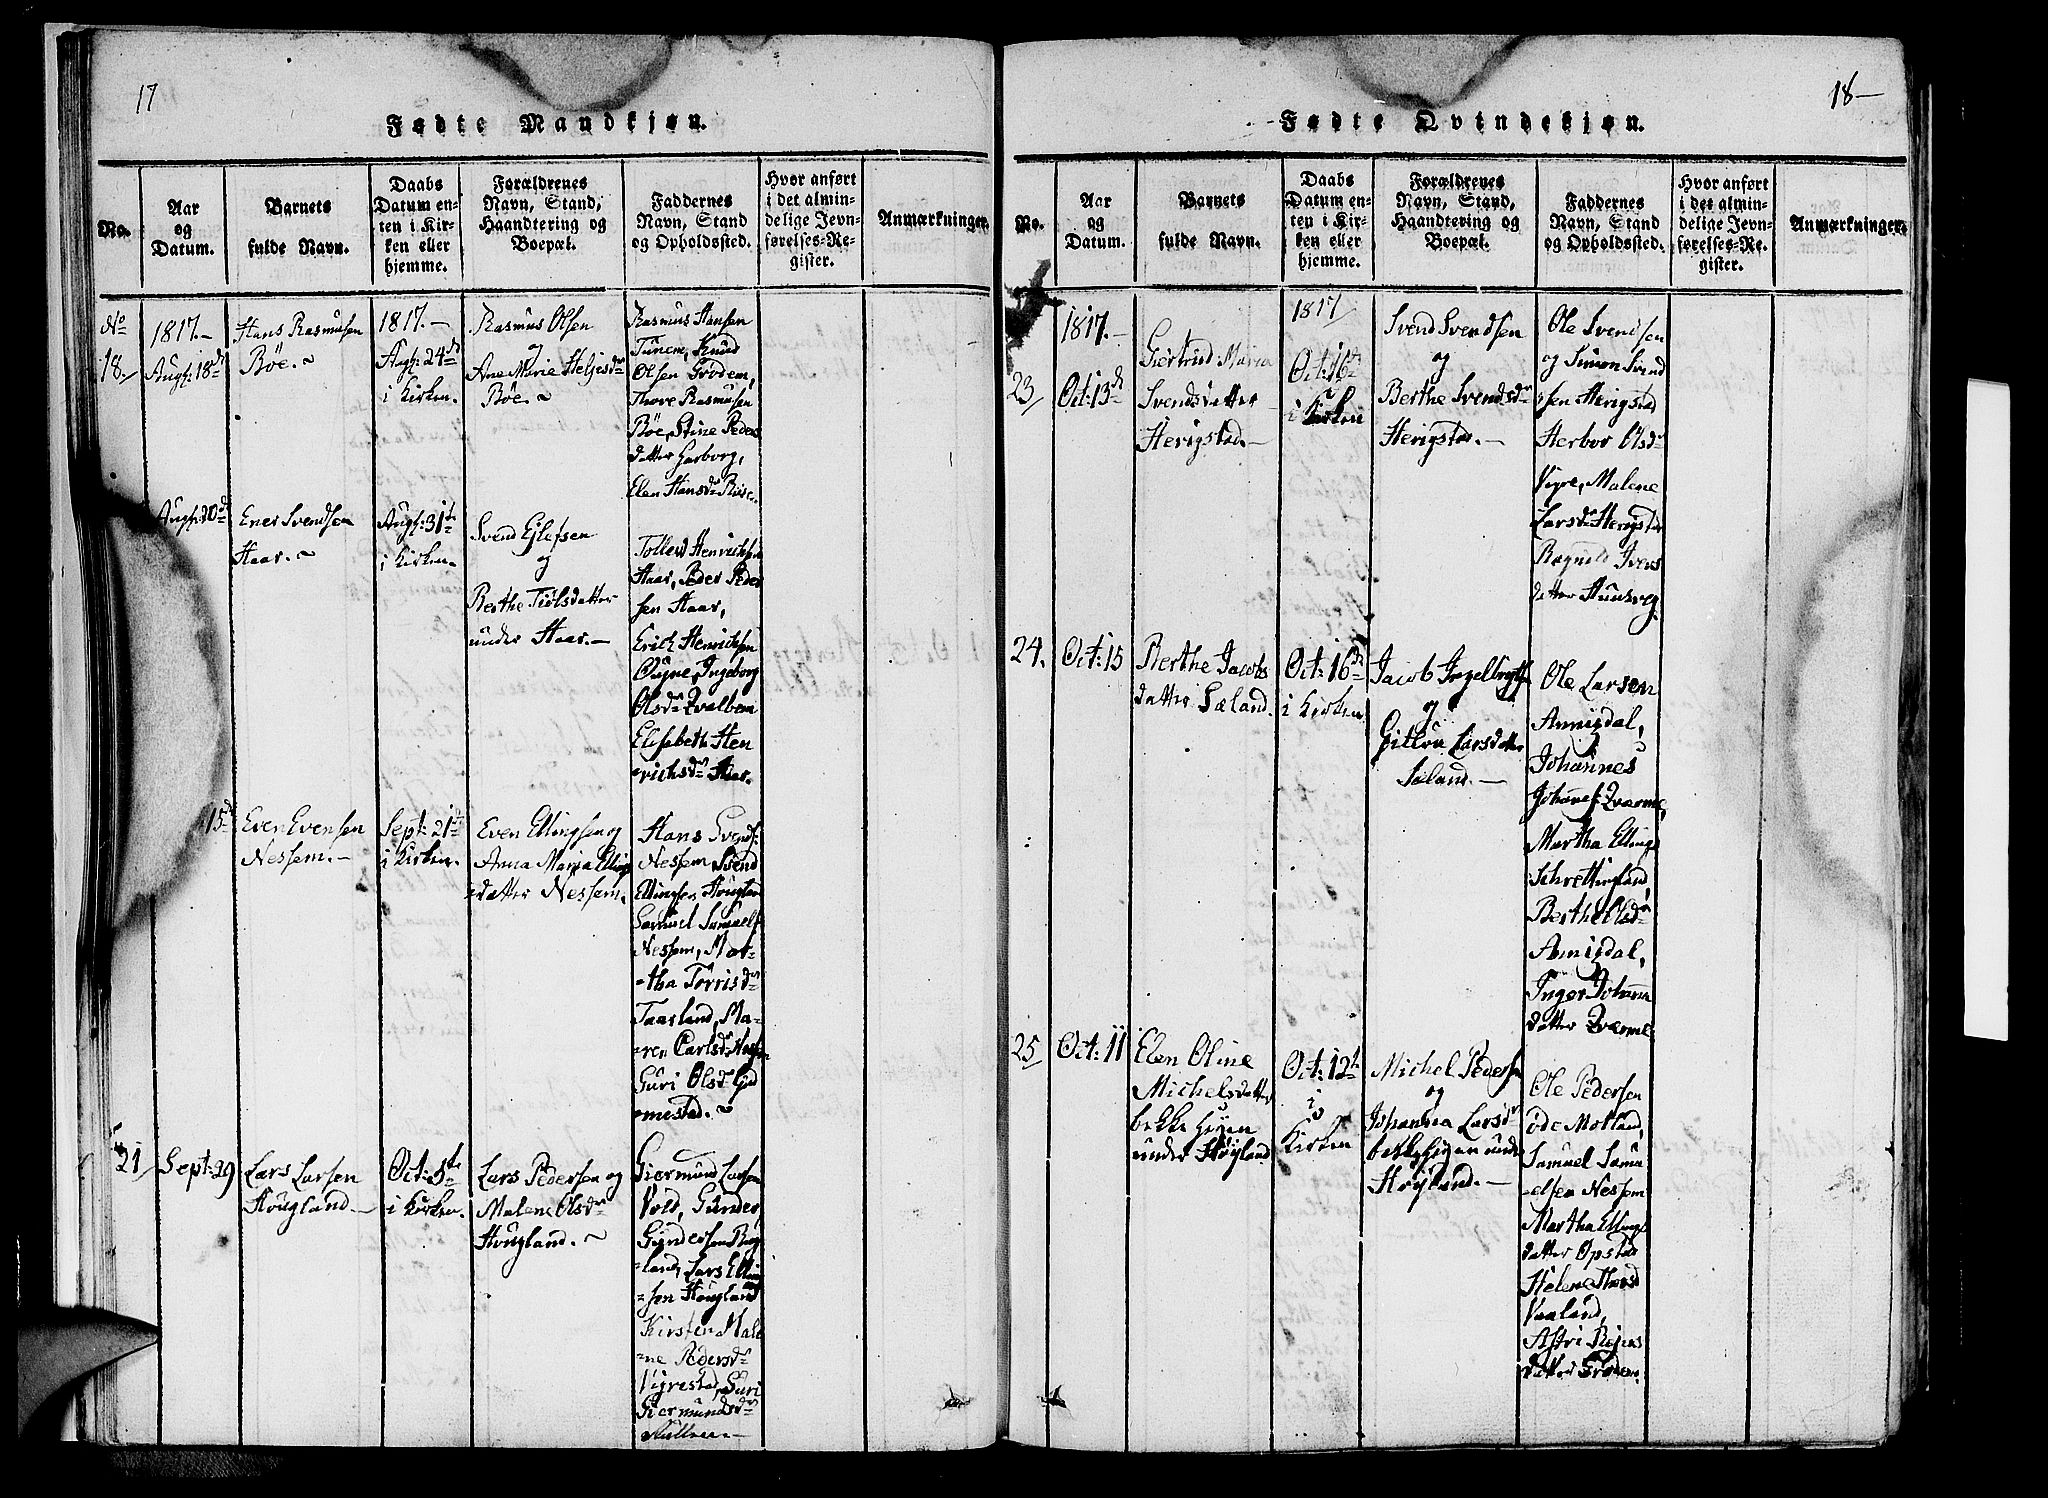 17
Fødte Mandkjøn.
No.
Aar
og
Datum.
Barnets
fulde Navn.
Daabs
Datum en-
ten i Kir-
ken eller
hjemme.
Forældrenes
Navn, Stand,
Haandtering og
Boepæl.
Faddernes
Navn, Stand
og Opholdssted.
Hvor anført
i det almin-
delige Jevn-
førelses-Re-
gister.
Anmærkninger.
No
18.
1817.-
Augs: 18de
Hans Rasmusen
Böe.
1817.-
Augs: 24de
i Kirken.
Rasmus Olsen
og
Ane Marie Heljesdr
Böe.
Rasmus Hansen
Tunem, Knud
Olsen Grödem,
Thore Rasmusen
Böe, Stine Peders
datter Garborg,
Elen Hansdr
Augs: 20de
Ener Svendsen
Haar.
Augs: 31te
i Kirken.
Svend Ejlefsen
og
Berthe Tiölsdatter
under Haar.-
Tollew Henrichsen
Haar, Peder Peder
sen Haar,
Erich Henrichsen
Ingeborg
Olsdr Qvalbein
Elisabeth Hen
richsdr Haar.
15de
Even Evensen
Nessem.-
Sept: 21te
i Kirken.
Even Ellingsen og
Anna Maria Elling
datter Nessem.
Hans Svends:
Nessem, Svend
Ellingsen Hougland
Samuel Samuels
Nessem, Mar-
tha Törrisd
Taarland, Ma-
ren Carlsdr
Guri Olsdr
mestad.
21
Sept: 29
Lars Larsen
Hougland.-
Oct: 5te
i Kirken.
Lars Pedersen og
Malene Olsdr
Hougland.
Giermund Larsen
Vold, Gunder
Gundersen Rug
land, Lars Ellin
sen Hougland
Kirsten Mal
ne Pedersd
Vigrestad, Guri
Giermundsdr
18-
Fødte Qvindekjøn.
No.
Aar
og
Datum.
Barnets
fulde Navn.
Daabs
Datum en-
ten i Kir-
ken eller
hjemme.
Forældrenes
Navn, Stand,
Haandtering og
Boepæl.
Faddernes
Navn, Stand
og Opholdssted.
Hvor anført
i det almin-
delige Jevn-
førelses-Re-
gister.
Anmærkninger.
23
1817.-
Oct: 13de
Giertrud Maria
Svendsdatter
Herigstad.-
1817
Oct: 16te
i Kirken
Svend Svendsen
og
Berthe Svendsdr
Herigstad.-
Ole Svendsen
og Simon Svend
sen Herigstad
Herbor Olsdr
Vigre, Malene
Larsdr Herigstad
Ragnild Ivers
datter
24.
Oct: 15
Berthe Jacobs
datter Sæland.
Oct: 16de
i Kirken
Jacob Ingelbrigths
og
Larsdatter
Sæland.-
Ole Larsen
Annisdal,
Johannes
Johanes: Qvarme,
Martha Ellings
Schrettingland,
Berthe Olsdr
Annisdal,
Inger Johanna
datter Qvarme
25
Oct: 11
Elen Oline
Michelsdatter
bekke Heyen
under Höyland
Oct: 12te
i
Kirken
Michel Pedersen
og
Johanna Larsdr
under
Höyland.-
Ole Pedersen
öde Motland,
Samuel Samu
elsen Nessem
Martha Ellings
datter Opstad
Helene Thorsd
Vaaland,
Astri Rejers
datter Gröden.